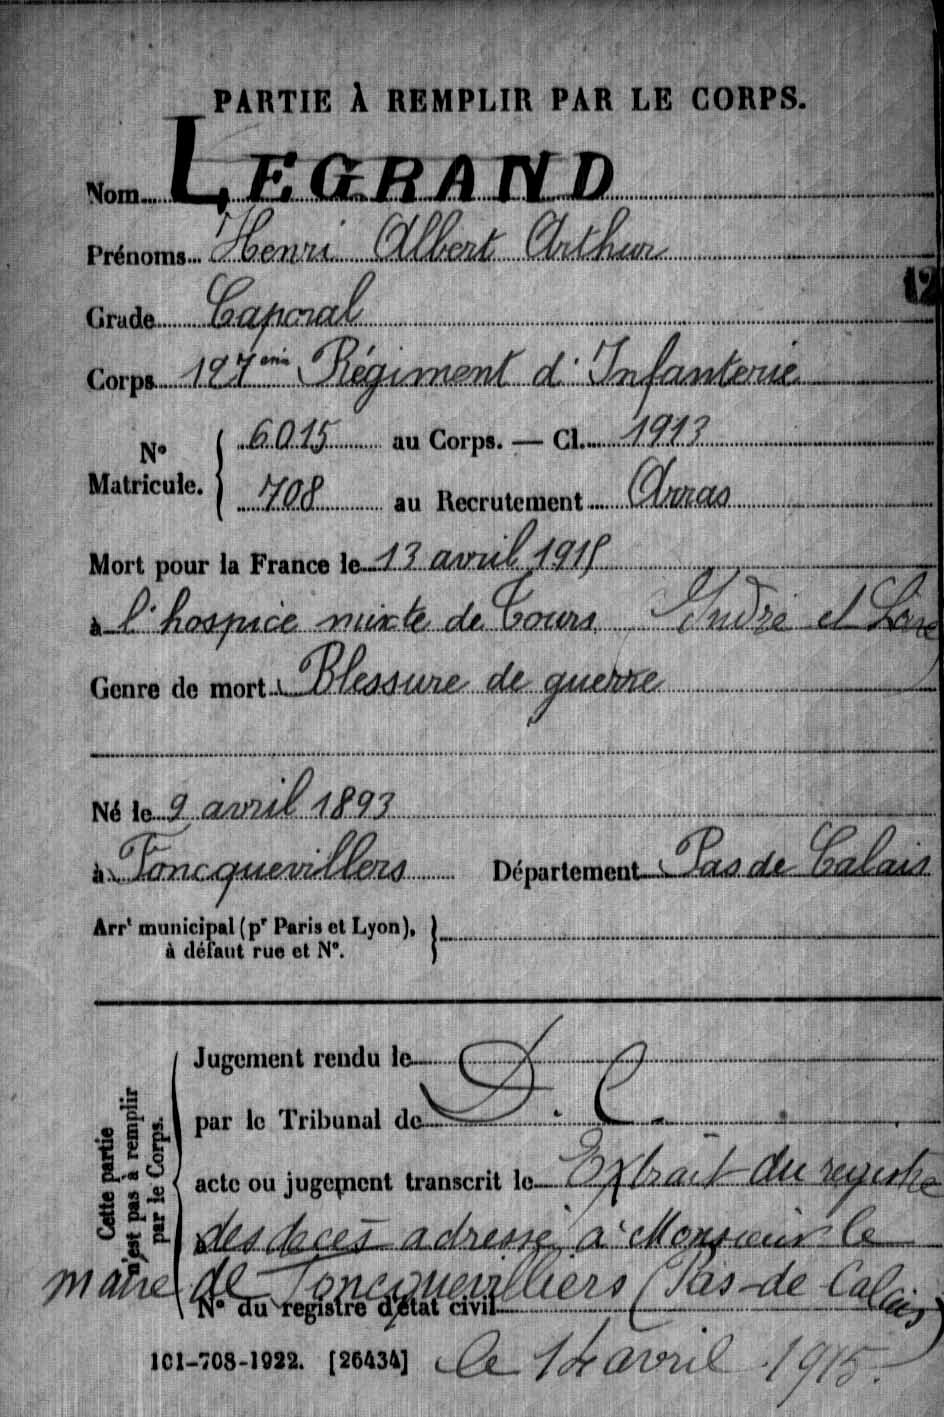 PARTIE À REMPLIR PAR LE CORPS.
Nom LEGRAND
Prénoms Henri Albert Arthur
12
Grade Caporal
Corps 127ème Régiment d'Infanterie
N° Matricule. { 6015 au Corps. — Cl. 1913
708 au Recrutement Arras
Mort pour la France le 13 avril 1915
à l'hospice mixte de Tours (Indre et Loire)
Genre de mort Blessure de guerre
Né le 9 avril 1893
à Foncquevillers Département Pas de Calais
Arrt municipal (pr Paris et Lyon), }
à défaut rue et N°.
Cette partie n'est pas à remplir par le Corps.
Jugement rendu le
par le Tribunal de D. C.
acte ou jugement transcrit le Extrait du registre
à des décès adressé à Monsieur le
maire de Foncquevilliers (Pas-de Calais)
N° du registre d'état civil
101-708-1922. [26434] le 14 avril 1915.